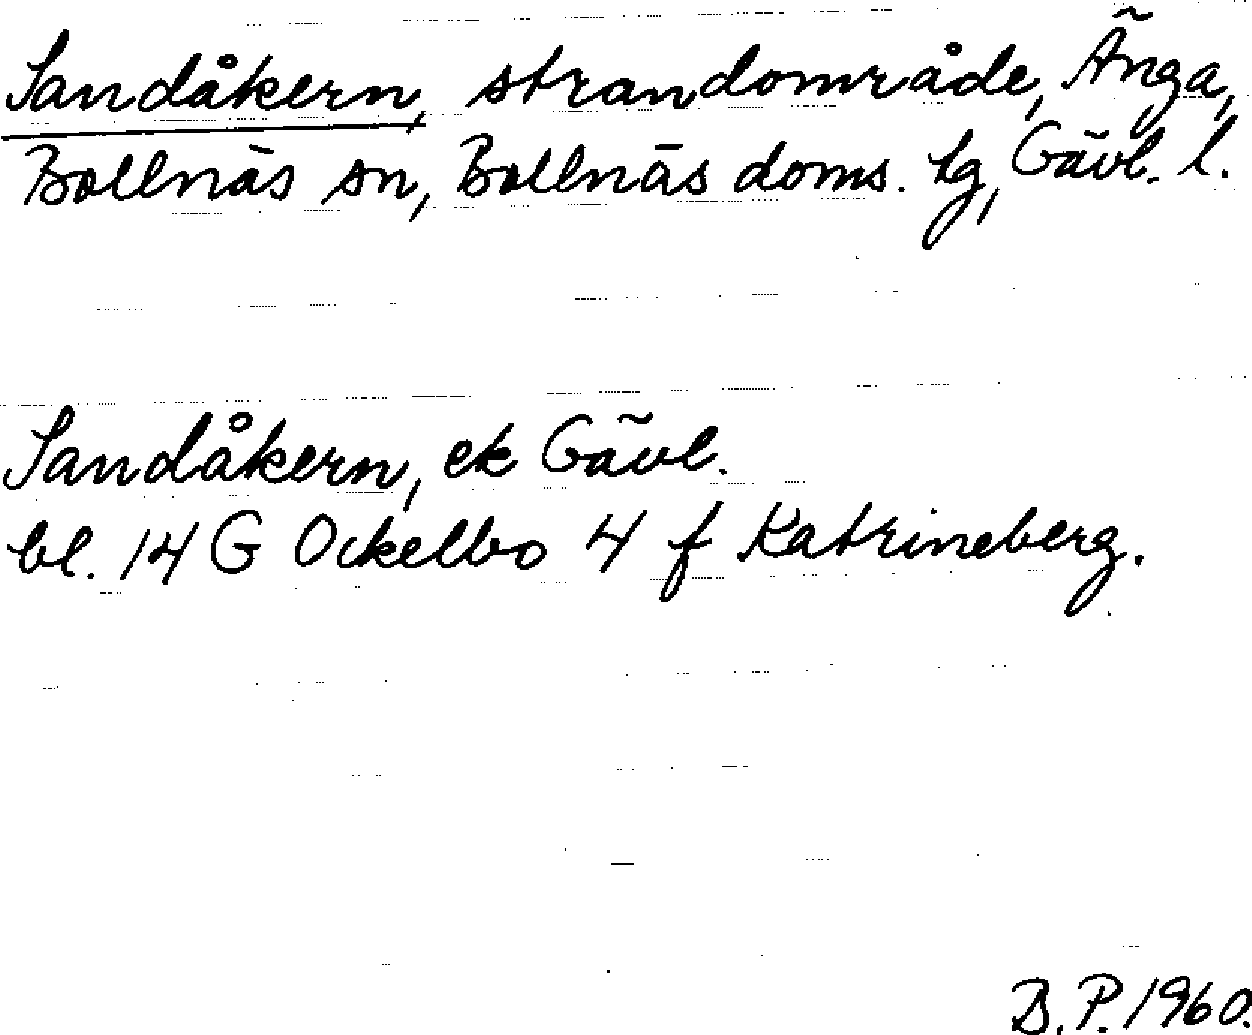 Sandåkern, strandområde, Änga,
Bollnäs sn, Bollnäs doms. tg, Gävl. l.
Sandåkern, ek Gävl.
bl. 14 G Ockelbo 4 f Katrineberg.
B.P. 1960.